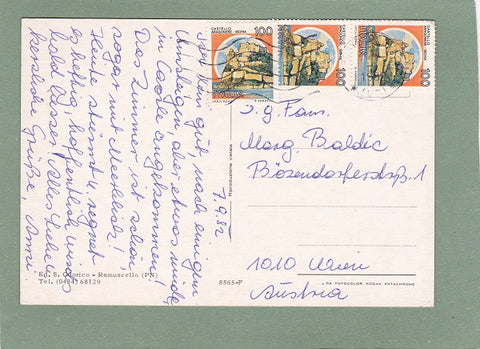 CASTELLO
ARAGONESE · ISCHIA
100
100
100
CASTELLO
Sind gut, nach einigem
Umsteigen, aber etwas müde,
in Caorle angekommen!
Das Zimmer ist schön,
sogar mit Meerblick!
Heute stürmt u. regnet
es heftig, hoffentlich wird's
bald besser. Alles Liebe
herzliche Grüße,
7.9.82
Riproduzione vietata
Marg. Baldic
Bösendorferstr. 1
1010 Wien
Austria
Ed. S. Odorico - Ramuscello (PN)
Tel. (0434) 68129
8565-F
DA FOTOCOLOR KODAK EKTACHROME